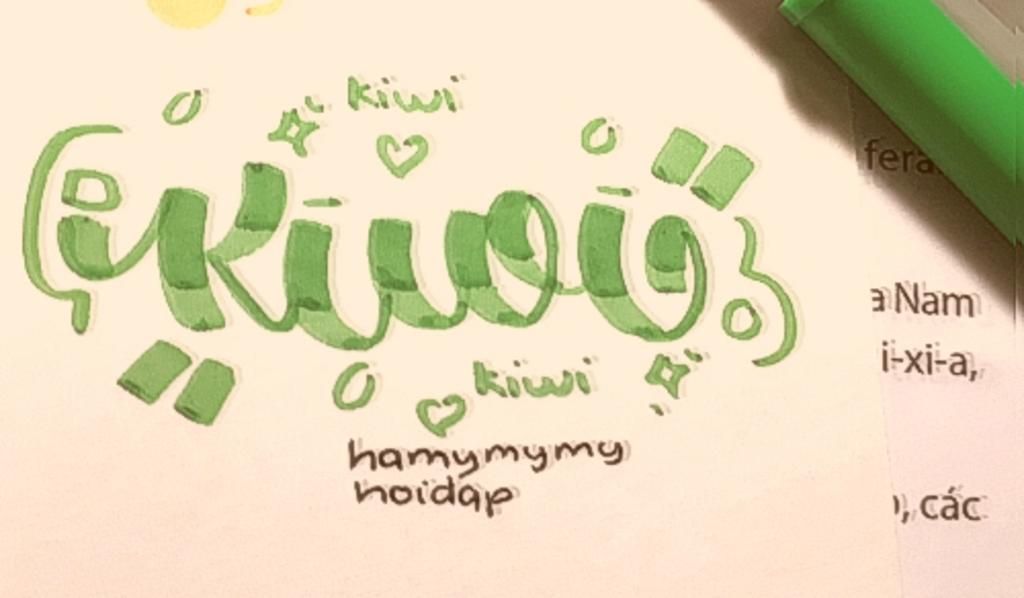 kiwi
kiwi
kiwi
hamymymy
hoidap
a Nam
i-xi-a,
, các